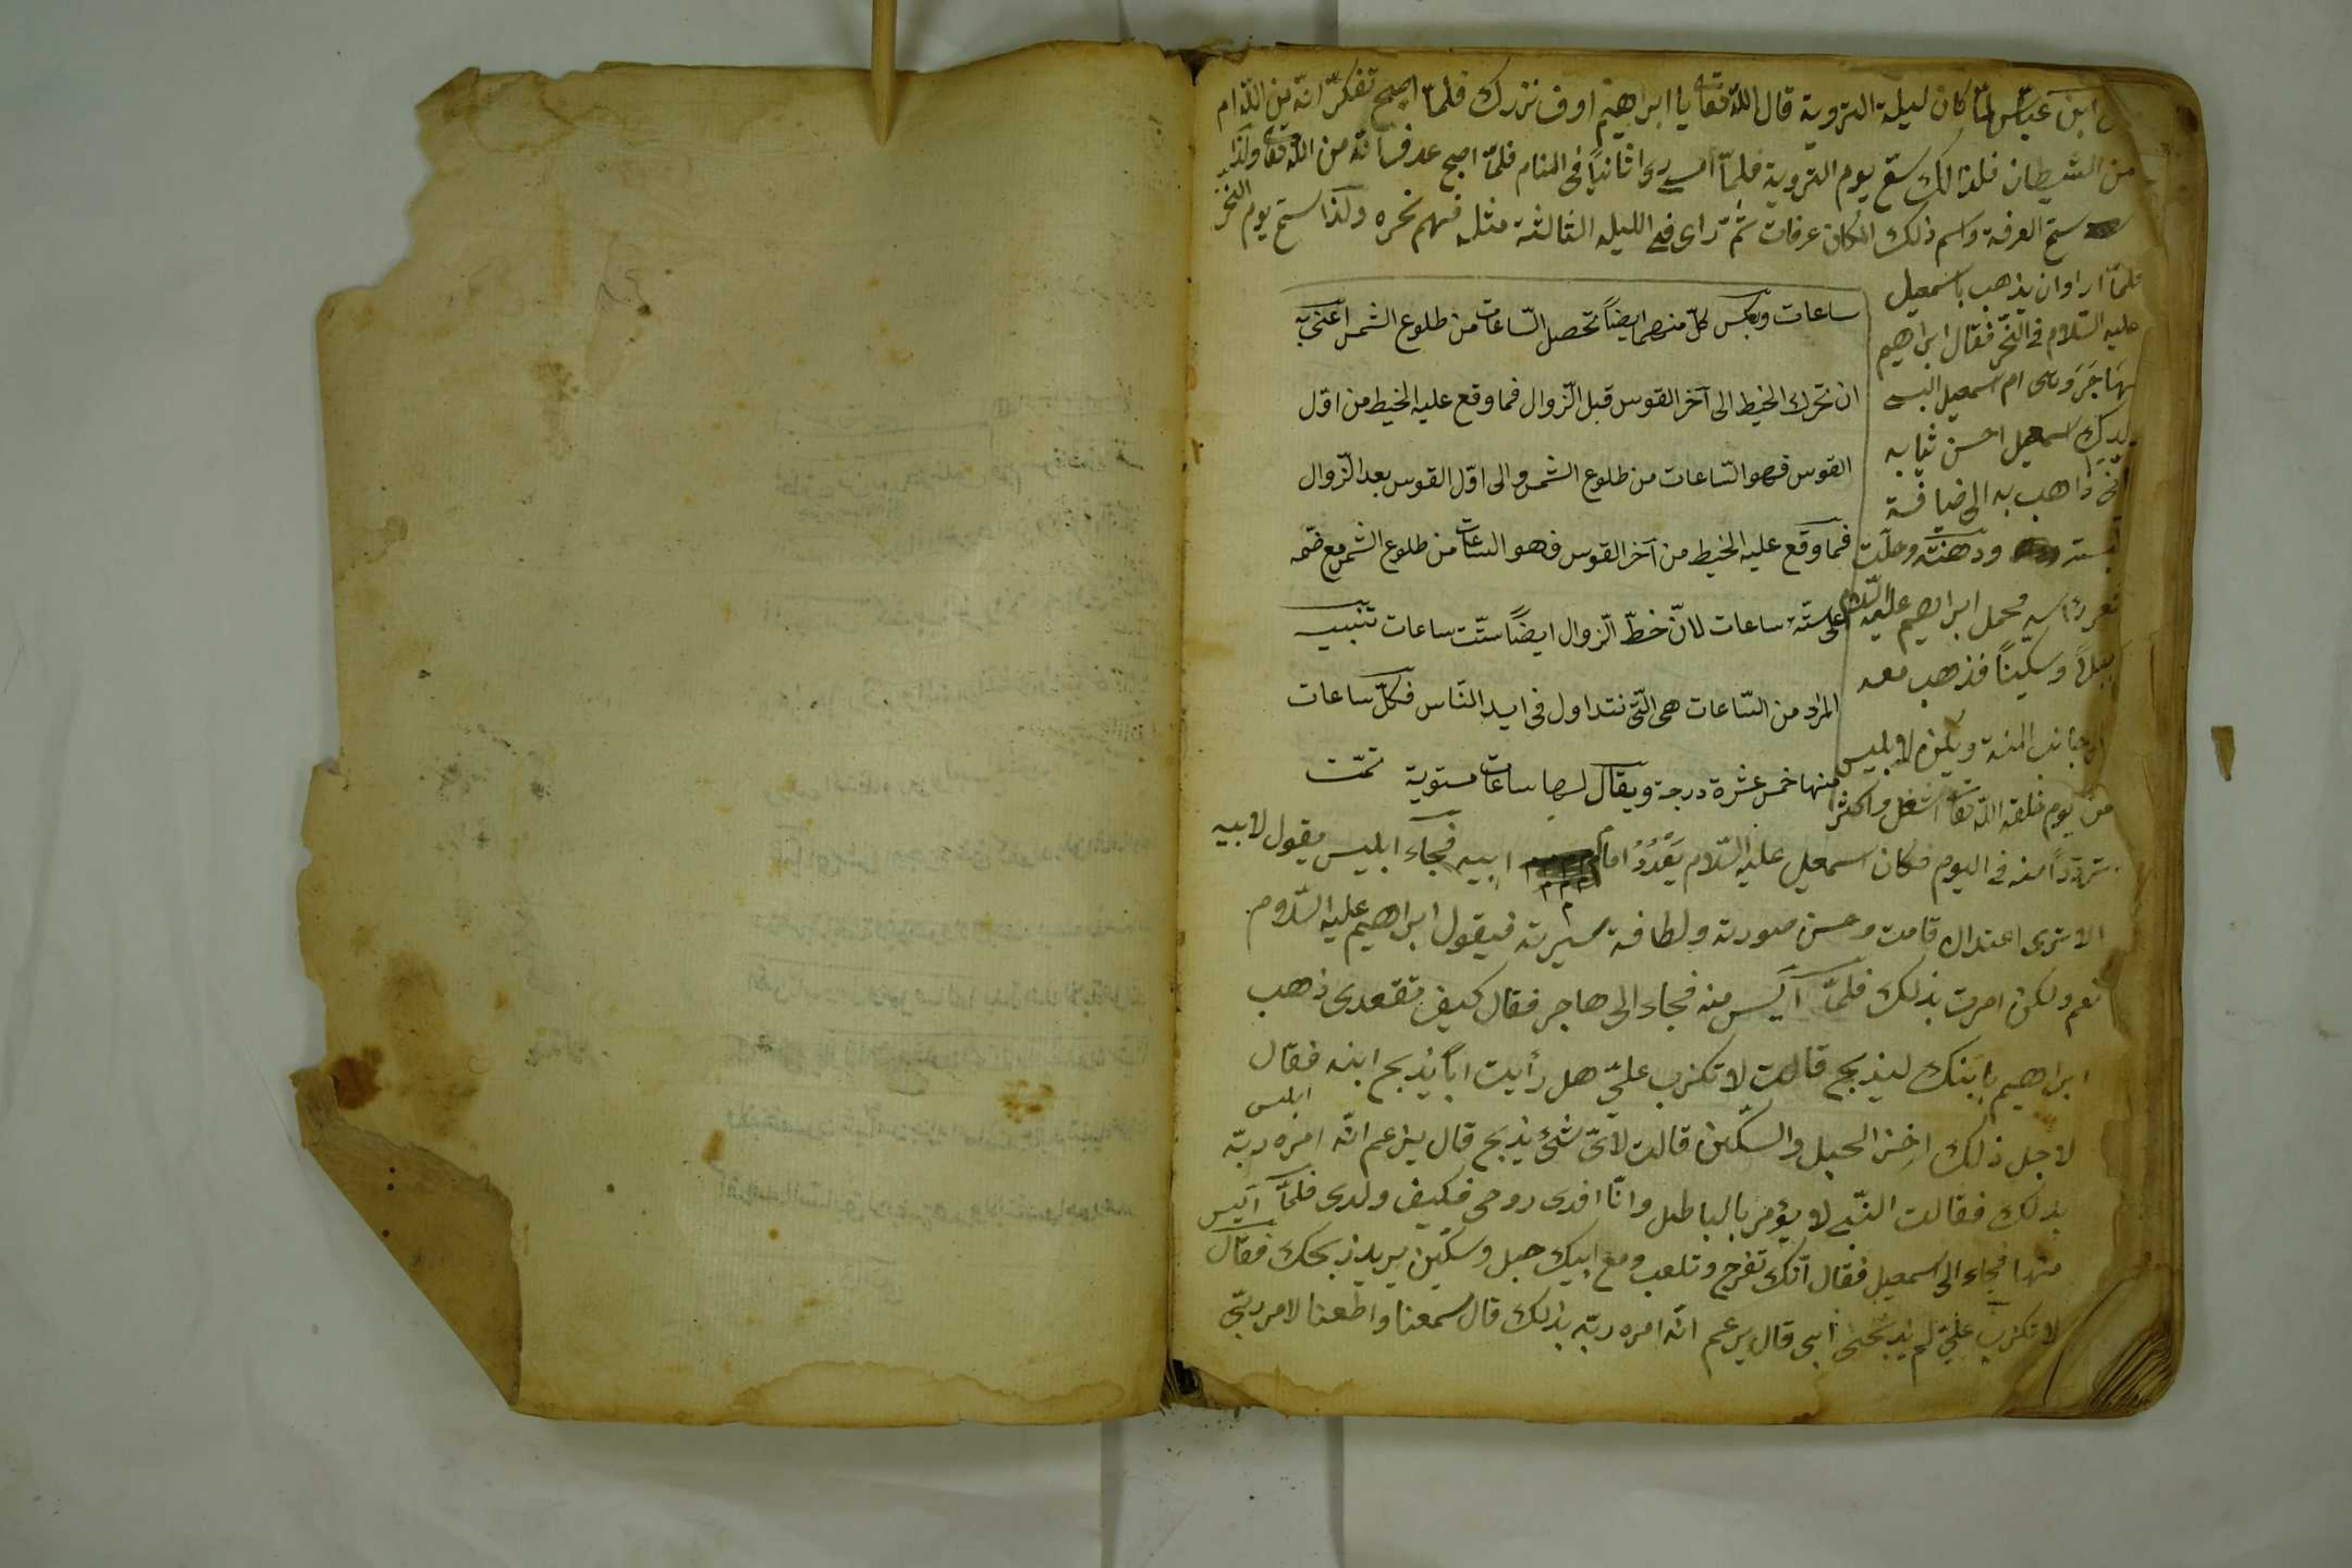 ابن عباس لمّا كان ليلة التروية قال اللّه تعالى يا ابراهيم اوف نزرك فلمّا اصبح تفكّر انّه من اللّه ام
من الشيطان فلذالك سمّى يوم التروية فلمّا امسى رى ثانياً فى المنام فلمّا اصبح عرف انّه من اللّه تعالى ولذا
سمّى العرفة واسم ذلك المكان عرفات ثمّ رأى فى الليله الثالثة مثله فهم نحره ولذا سمّى يوم النحر
فلمّا اراد ان يذهب باسمعيل
عليه السّلام فى النّحر فقال ابراهيم
لهاجَرَ وهى ام اسمعيل البسى
ولدك اسمعيل احسن ثيابه
انّى ذاهب به الى ضيافة
ودهنته وحلّت
رأسه فحمل ابراهيم عليه السّلام
حبلاً وسكّيناً فذهب معه
جانب المنة ويكن لابليس
من يوم خلقه اللّه تعالى اشغل واكثر
تردّداً منه فى اليوم فكان اسمعيل عليه السّلام يَعْدُدُ امام ابيه فجآء ابليس يقول لابيه
الا ترى اعتدال قامت وحسن صورته ولطافة سيرته فيقول ابراهيم عليه السّلام
نعم ولكن امرت بذلك فلمّا آيس منه فجاء الى هاجر فقال كيف تقعدى ذهب
ابراهيم بابنك ليذبح قالت لا تكزب علىّ هل رأيت اباً يذبح ابنه فقال ابليس
لاجل ذلك اخذ الحبل والسكّين قالت لاىّ شئ يذبح قال يزعم انّه امره ربّه
بذلك فقالت النبّى لا يؤمر بالباطل وانّا افدى روحى فكيف ولدى فلمّا آيس
منها فجاء الى اسمعيل فقال انّك تفرح وتلعب ومع ابيك حبل وسكّين يريد ذبحك فقال
لا تكزب علىّ لم يذبحنى ابى قال يزعم انّه امره ربّه بذلك قال سمعنا واطعنا لامر ربّى
ساعات وبعكس كلّ منهما ايضاً تحصل السّاعات من طلوع الشمس اعنى به
ان تحرك الخيط الى آخر القوس قبل الزّوال فما وقع عليه الخيط من اوّل
القوس فهو السّاعات من طلوع الشمس والى اوّل القوس بعد الزّوال
فما وقع عليه الخيط من آخر القوس فهو الساعات من طلوع الشمس مع ضمّه
على ستّة ساعات لانّ خطّ الزّوال ايضاً ستّت ساعات تنبيه
المراد من السّاعات هى الّتى نتداول فى ايد النّاس فكلّ ساعات
منها خمس عشرة درجة ويقال لها ساعات مستوية تمّت